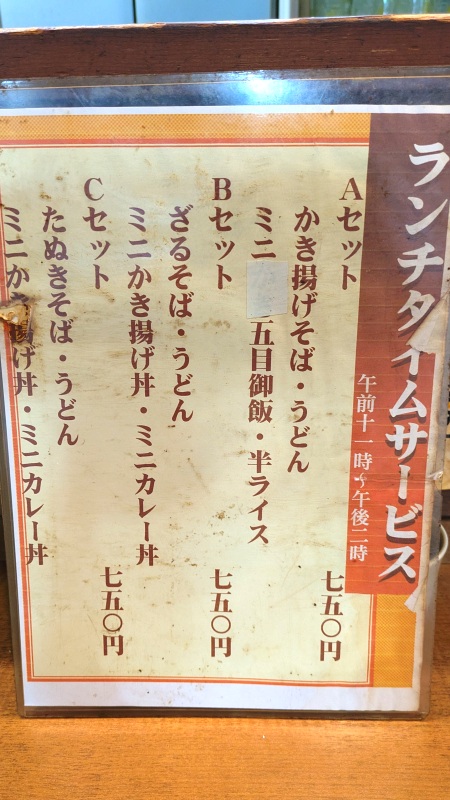 ランチタイムサービス
午前十一時~午後二時
Aセット
かき揚げそば・うどん
ミニ五目御飯・半ライス
七五〇円
Bセット
ざるそば・うどん
ミニかき揚げ丼・ミニカレー丼
七五〇円
Cセット
たぬきそば・うどん
ミニかき揚げ丼・ミニカレー丼
七五〇円